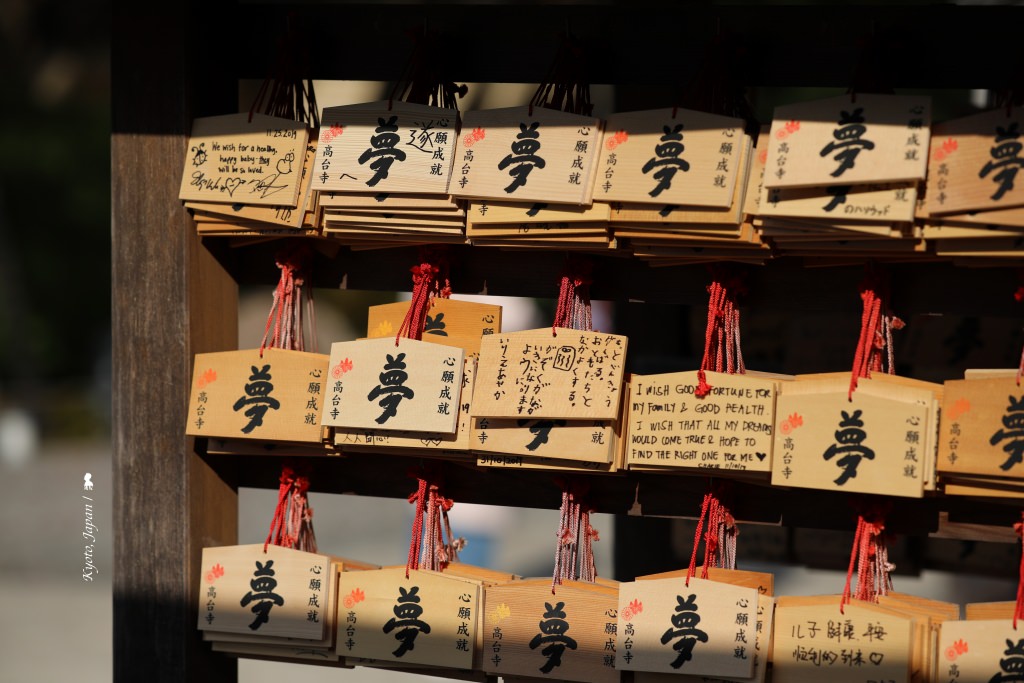 11.23.2019
We wish for a healthy,
happy baby. they
will be so loved.
心願成就
夢
高台寺
遂
心願成就
夢
高台寺
心願成就
夢
高台寺
心願成就
夢
高台寺
心願成就
夢
高台寺
のハリウッド
夢
高台寺
心願成就
夢
高台寺
心願成就
夢
高台寺
おともだちと
なかよくする。
かぞくが
ように
就
31/10/2019
I WISH GOOD FORTUNE FOR
MY FAMILY & GOOD HEALTH.
I WISH THAT ALL MY DREAMS
WOULD COME TRUE & HOPE TO
FIND THE RIGHT ONE FOR ME ♥
心願成就
夢
高台寺
夢
高台寺
心願成就
夢
高台寺
心願成就
夢
高台寺
心願成就
夢
高台寺
心願成就
夢
高台寺
儿子
顺利的到来♡
夢
高台寺
Kyoto, Japan /